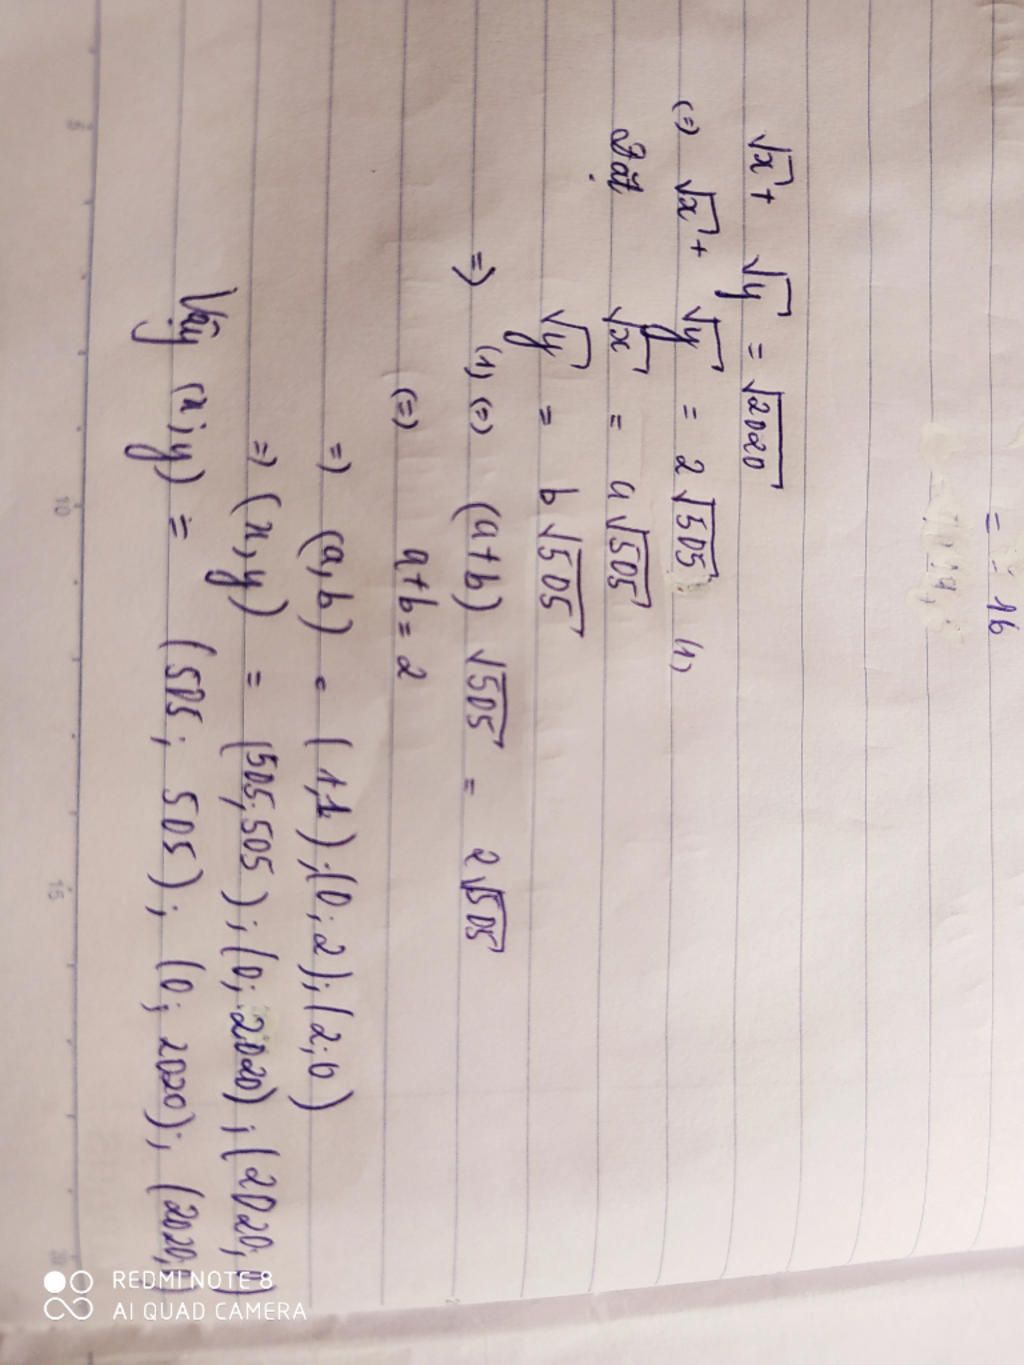 = 16
√x + √y = √2020
(=) √x + √y = 2√505 (1)
Đặt √x = a√505
√y = b√505
=) (1) (=) (a+b) √505 = 2√505
(=) a+b = 2
=) (a,b) = (1,1);(0;2);(2;0)
=) (x,y) = (505;505);(0;2020);(2020;0)
Vậy (x;y) = (505; 505); (0; 2020); (2020;0)
5
10
15
20
REDMI NOTE 8
AI QUAD CAMERA